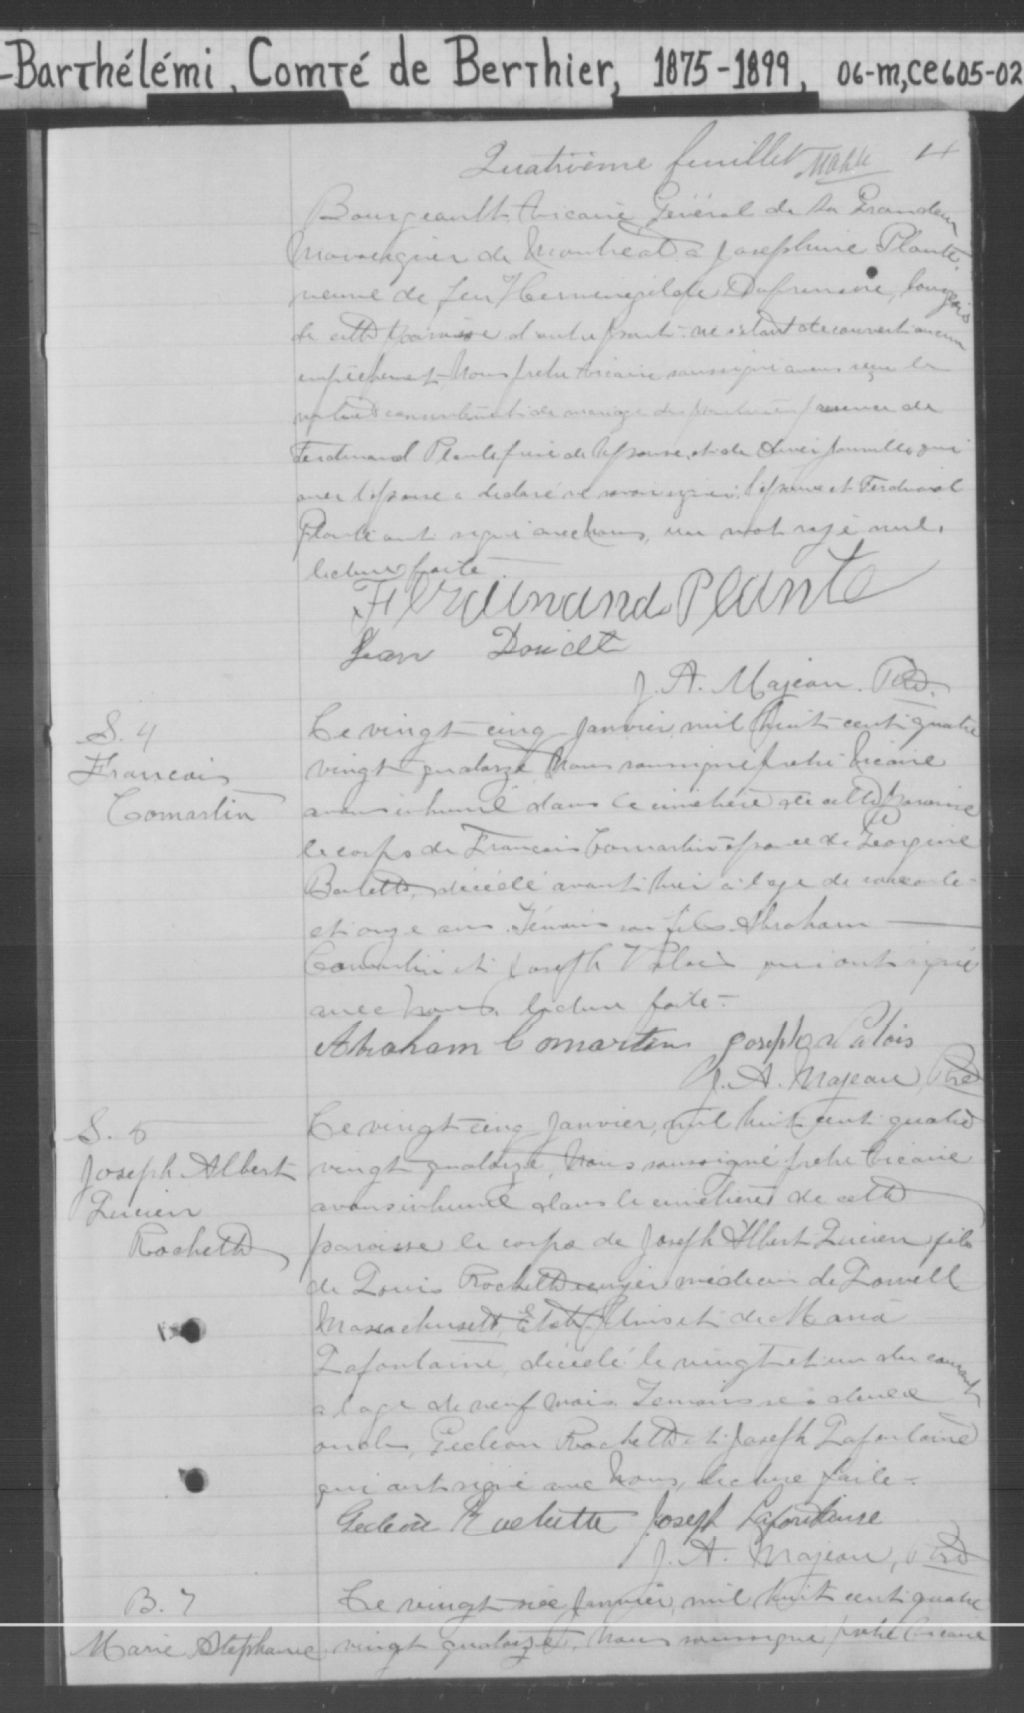 -Barthélémi, Comté de Berthier, 1875-1899, 06-M,CE605-02
Quatrième feuillet 4
Bourgeault Vicaire Général de Sa Grandeur
Monseigneur de Montréal à Josephine Plante
veuve de feu Herménégilde Dufresne, bourgeois
de cette paroisse d'autre part: ne s'étant découvert aucun
empêchement Nous prêtre Vicaire soussigné avons reçu le
mutuel consentement de mariage des parties en présence de
Ferdinand Plante frère de l'épouse, et de Olivier qui
avec l'épouse a déclaré ne savoir signer. L'époux et Ferdinand
Plante ont signé avec Nous, un mot rayé nul.
lecture faite.
Ferdinand Plante
Jean
J. A. Majeau. Ptre.
S. 4
Francois
Comartin
Ce vingt cinq Janvier, mil huit cent quatre
vingt quatorze, Nous soussigné prêtre Vicaire
avons inhumé dans le cimetière de cette paroisse
le corps de Francois Comartin époux de Georgine
décédé avant hier à l'age de soixante
et onze ans. Témoins son fils Abraham
Comartin et Joseph Valois qui ont signé
avec Nous. lecture faite.
Abraham Comartin Joseph Valois
J. A. Majeau, Ptre
S.
Joseph Albert
Lucien
Rochette
Ce vingt cinq Janvier, mil huit cent quatre
vingt quatorze, Nous soussigné prêtre Vicaire
avons inhumé dans le cimetière de cette
paroisse le corps de Joseph Albert Lucien fils
de Louis Rochette écuyer médecin de Lowell
Massachusetts, Etats Unis et de Maria
Lafontaine, décédé le vingt et un du courant
à l'age de neuf mois. Temoins ses deux
oncles, Gédéon Rochette et Joseph Lafontaine
qui ont signé avec Nous, lecture faite.
Gédéon Rochette Joseph Lafontaine
J. A. Majeau, Ptre
B. 7
Marie Stephanie
Ce vingt six Janvier, mil huit cent quatre
vingt quatorze, Nous soussigné prêtre Vicaire